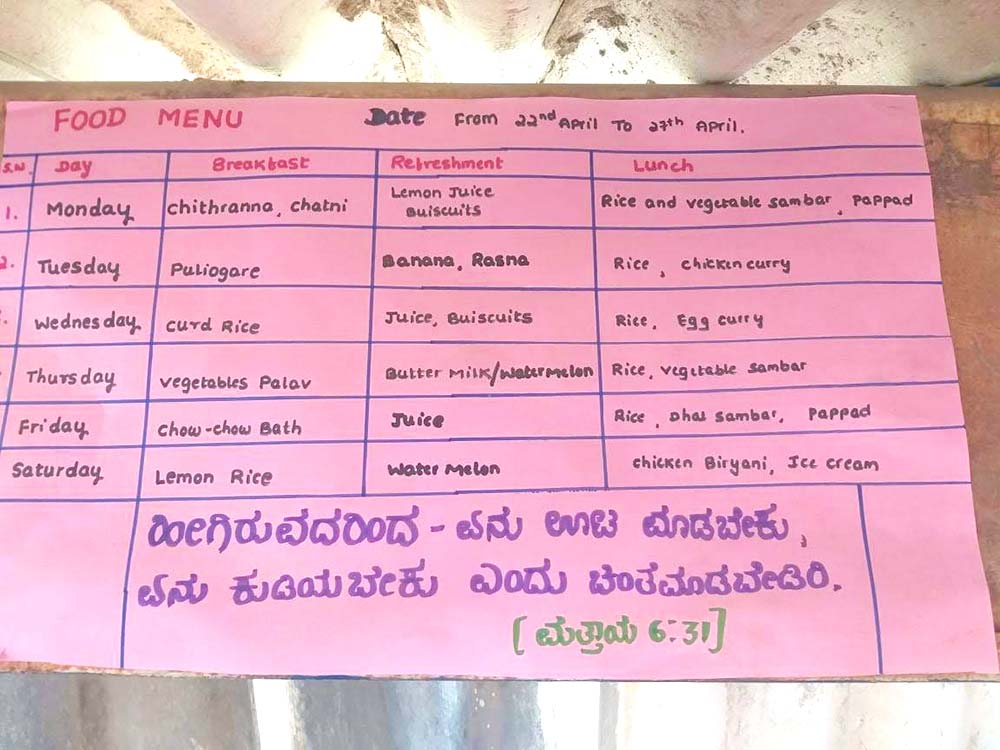 FOOD MENU Date From 22nd April To 27th April.
S.N. Day Breakfast Refreshment Lunch
1. Monday Chithranna, Chatni Lemon Juice Buiscuits Rice and vegetable sambar, Pappad
2. Tuesday Puliogare Banana, Rasna Rice, chicken curry
Wednesday Curd Rice Juice, Buiscuits Rice, Egg curry
Thursday vegetables Palav Butter Milk/Watermelon Rice, vegetable sambar
Friday Chow-chow Bath Juice Rice, Dhal sambar, Pappad
Saturday Lemon Rice Water Melon chicken Biryani, Ice cream
ಹೀಗಿರುವದರಿಂದ - ಏನು ಊಟ ಮಾಡಬೇಕು,
ಏನು ಕುಡಿಯಬೇಕು ಎಂದು ಚಿಂತೆಮಾಡಬೇಡಿರಿ.
[ಮತ್ತಾಯ 6:31]